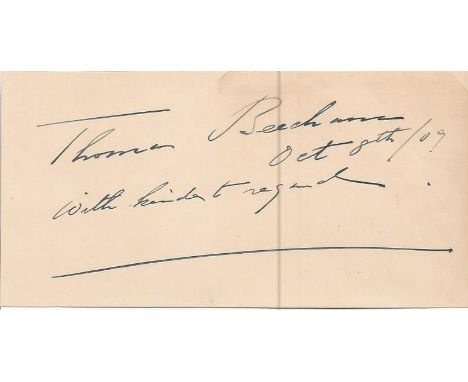 Thomas Beecham
Oct 8th/09
With kindest regards.